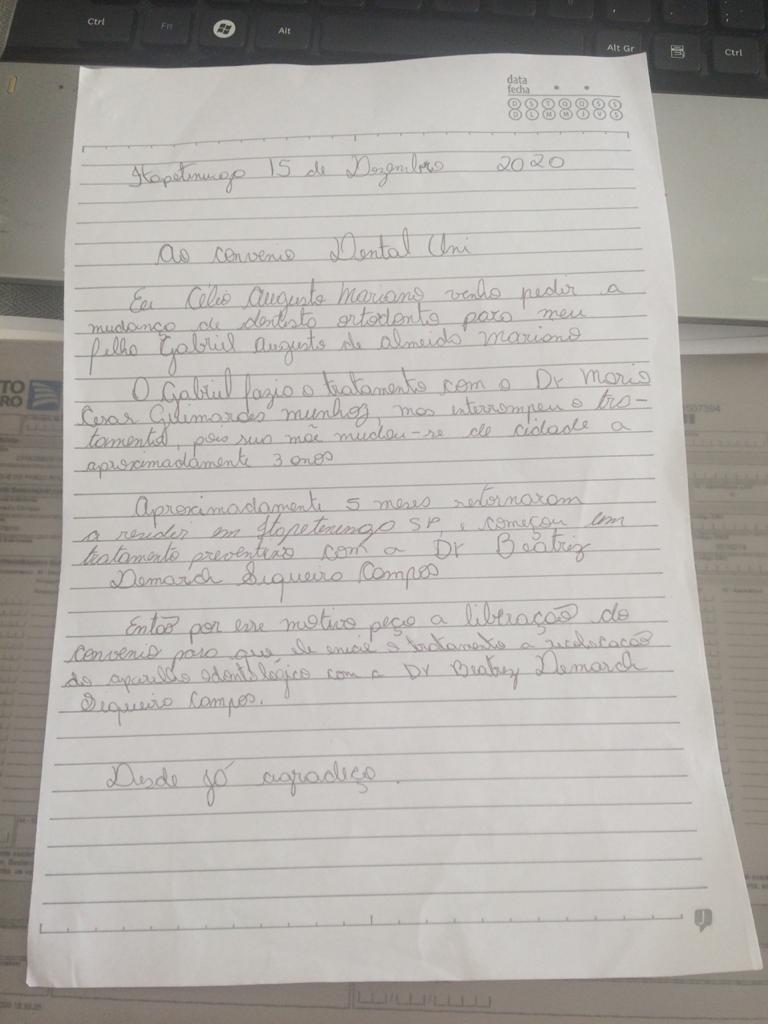 Ctrl
Fn
Alt
Alt Gr
Ctrl
data
fecha
D S T Q Q S S
D L M M J V S
Itapetininga 15 de Dezembro 2020
Ao convenio Dental Uni
Eu Célio Augusto Mariano venho pedir a
mudança de dentista ortodonto para meu
filho Gabriel Augusto de Almeida Mariano
O Gabriel fazia o tratamento com o Dr Mario
Cesar Guimarães Munhoz, mas interrompeu o tra-
tamento, pois sua mãe mudou-se de cidade a
aproximadamente 3 anos
Aproximadamente 5 meses retornaram
a residir em Itapetininga SP, e começou um
tratamento preventivo com a Dr Beatriz
Demarch Siqueira Campos
Então por esse motivo peço a liberação do
convenio para que ele inicie o tratamento a recolocação
do aparelho odontológico com a Dr Beatriz Demarch
Siqueira Campos.
Desde já agradeço.
J
TO
RO
507394